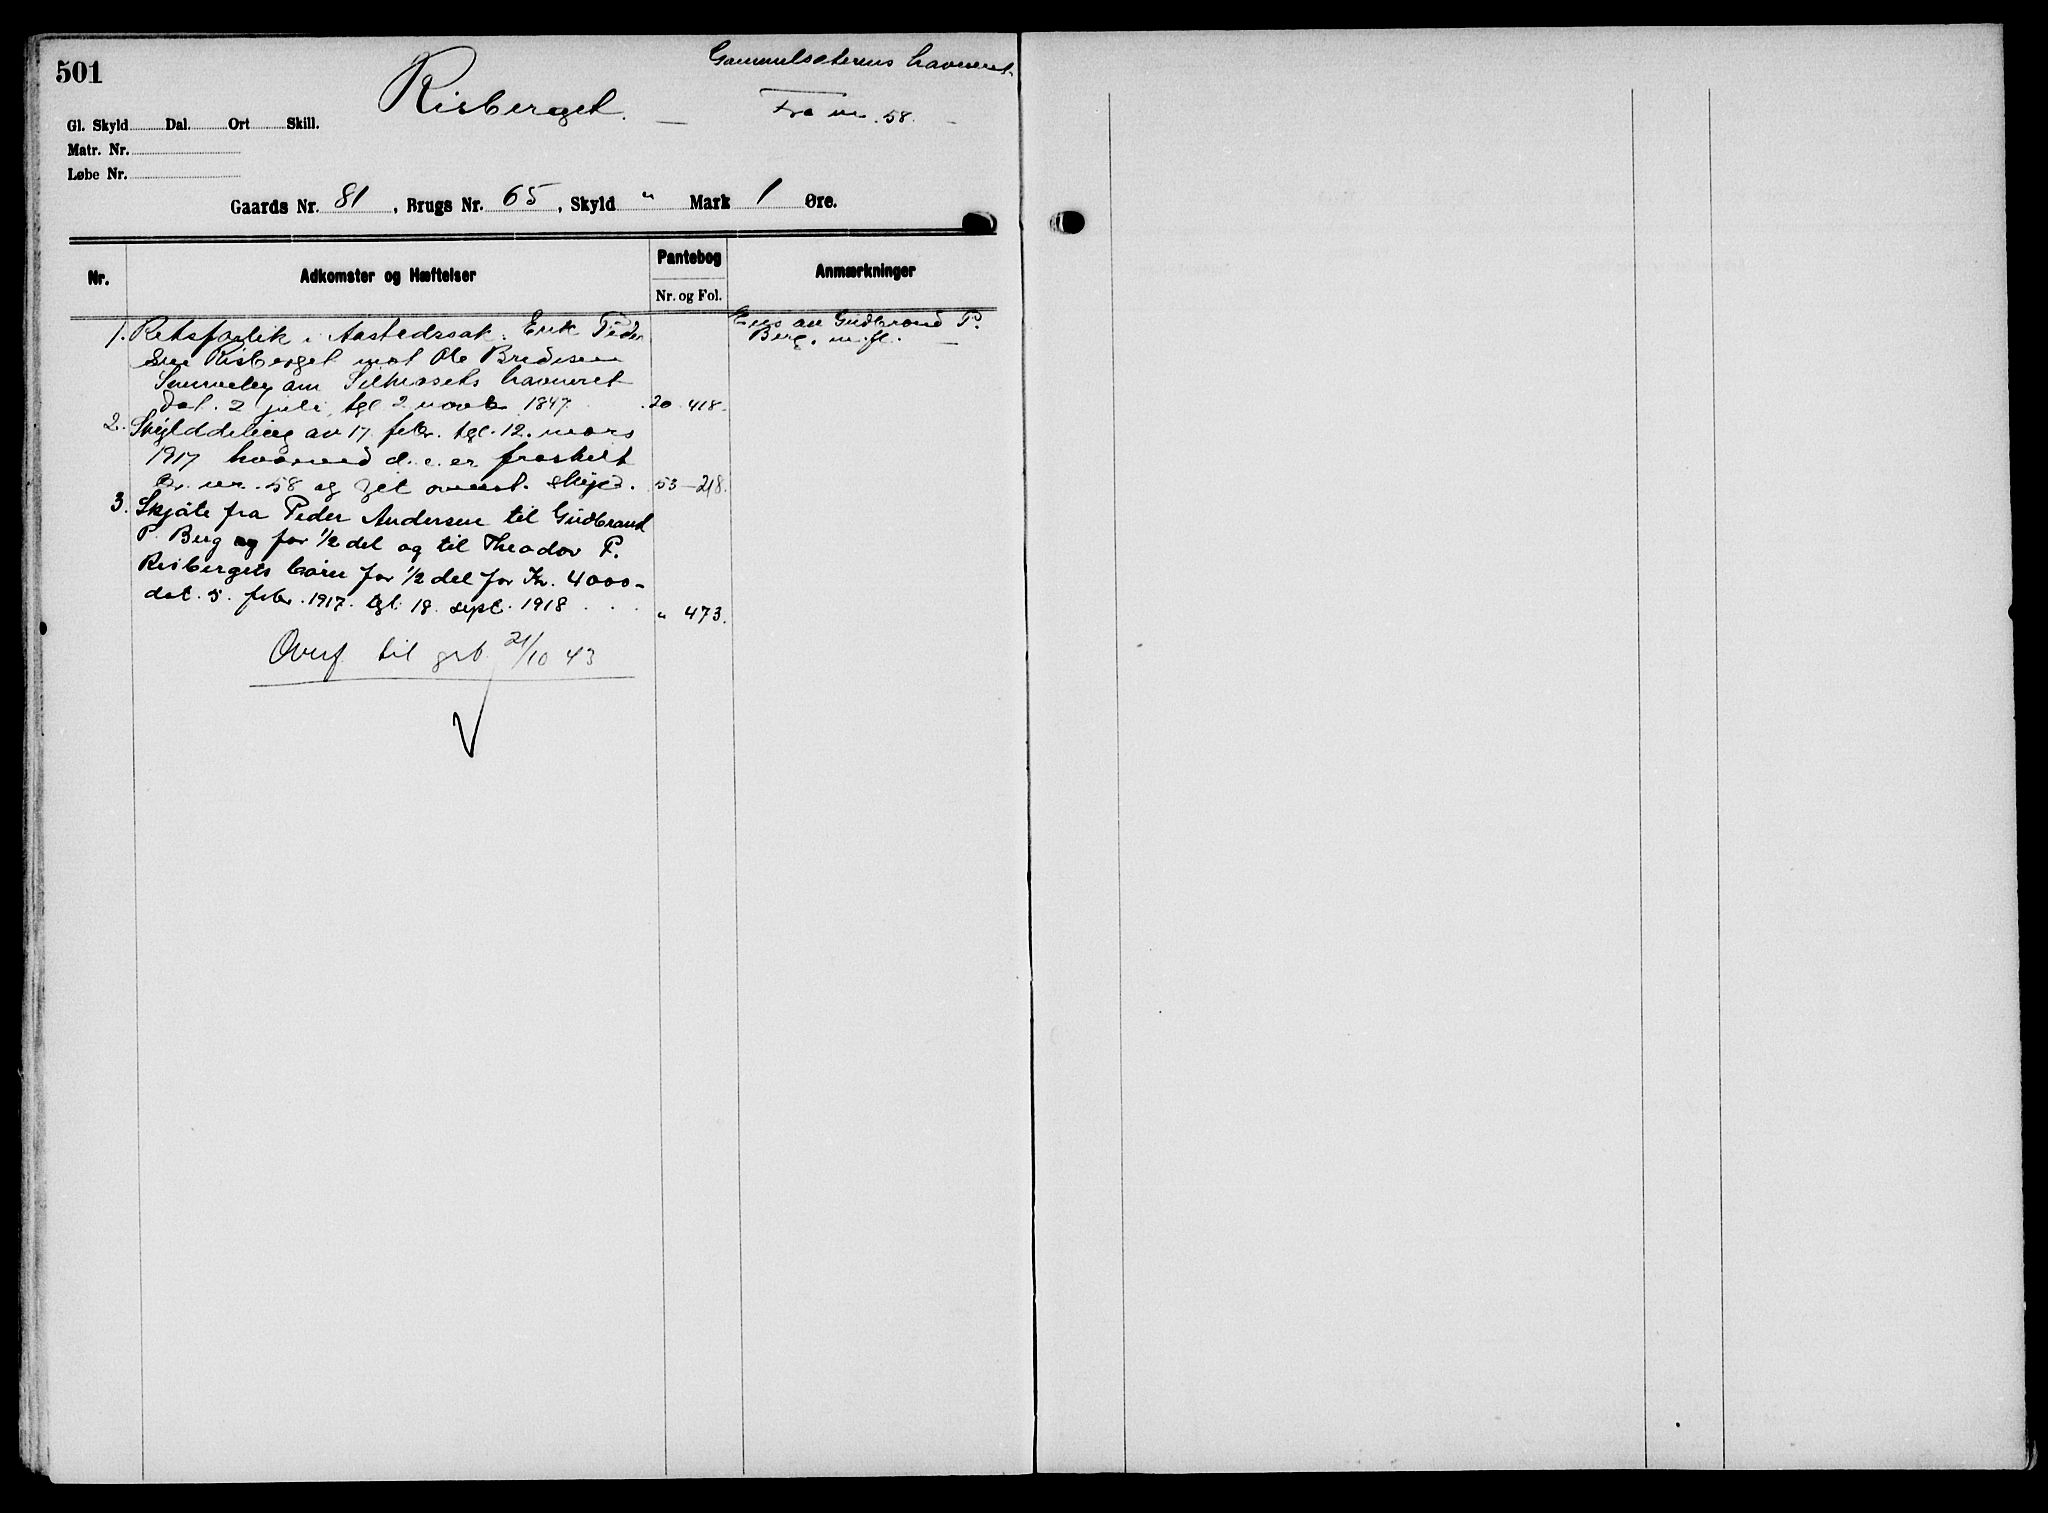 501
Risberget.
Gammelseterens havneret
Fra nr. 58.
Gl. Skyld Dal. Ort Skill.
Matr. Nr.
Løbe Nr.
Gaards Nr. 81, Brugs Nr. 65, Skyld " Mark 1 Øre.
Nr. Adkomster og Hæftelser Pantebog Anmærkninger
Nr. og Fol.
1. Retsforlik i Aastedssak: Erik Peder
sen Risberget mot Ole Bredesen
om havneret
dat. 2 juli, tgl 2 novb 1847. 20 - 418.
Eies av Gudbrand P.
Berg. m. fl.
2. Skylddeling av 17 febr. tgl. 12. mars
1917 hvorved d. e. er fraskilt
br. nr. 58 og git ovenst. skyld. 53 - 218.
3. Skjøte fra Peder Andersen til Gudbrand
P. Berg for 1/2 del og til Theodor P.
Risbergets barn for 1/2 del for Kr. 4000-
dat. 5. febr. 1917. tgl. 18. sept. 1918 . . . " 473.
Overf til grb. 21/10 43